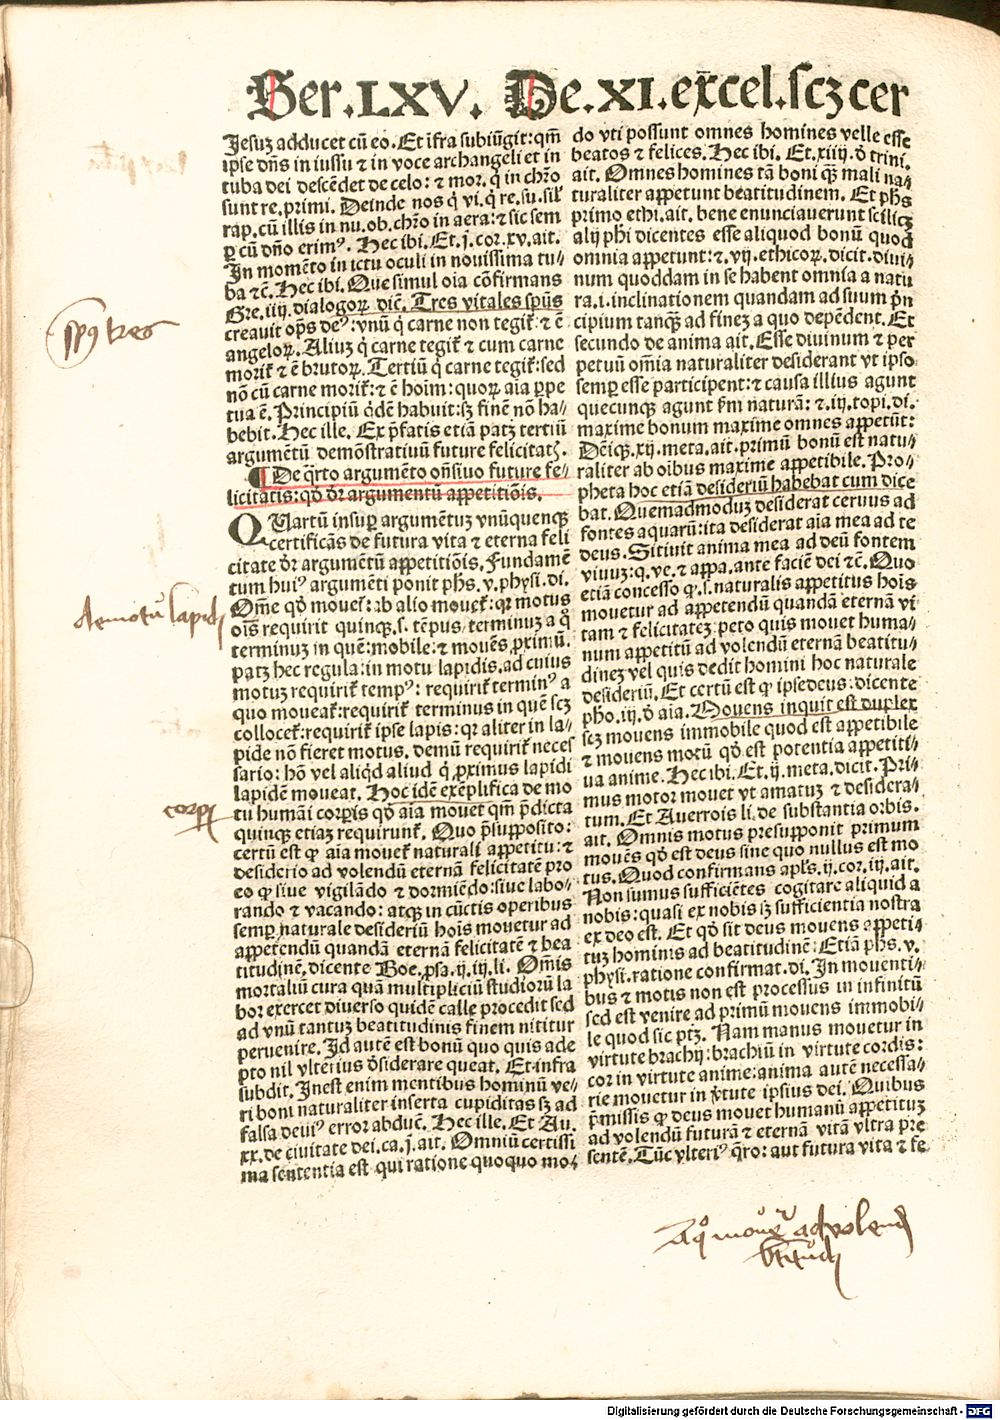 Ser.LXV. De.XI.excel.scꝫ cer
Jesuꝫ adducet cū eo. Et īfra subiūgit: qm̄
ipse dn̄s in iussu ⁊ in voce archangeli et in
tuba dei descēdet de celo: ⁊ mor. q̇ in chr̄o
sunt re. primi. Deinde nos q̇ vi. q̇ re. su. sil̓
rap. cū illis in nu. ob. chr̄o in aera: ⁊ sic sem
ꝑ cū dn̄o erimꝰ. Hec ibi. Et .j. cor. xv. ait.
In momēto in ictu oculi in nouissima tu-
ba ⁊c̄. Hec ibi. Que simul oīa cōfirmans
Gre. iiij. dialogoꝝ. dic̄. Tres vitales sp̄us
creauit op̄s deꝰ: vnū q̇ carne non tegit̉ ⁊ ē
angeloꝝ. Aliuꝫ q̇ carne tegit̉ ⁊ cum carne
morit̉ ⁊ ē brutoꝝ. Tertiū q̇ carne tegit̉: sed
nō cū carne morit̉: ⁊ ē hoīm: quoꝝ aīa ꝑpe
tua ē. Principiū q̇dē habuit: sꝫ finē nō ha-
bebit. Hec ille. Ex p̄fatis etiā patꝫ tertiū
argumētū demōstratiuū future felicitatꝭ.
¶ De q̄rto argumēto on̄siuo future fe-
licitatis: qd̄ dr̄ argumentū appetitiōis.
QUartū insuꝑ argumētuꝫ vnūquenqꝫ
certificās de futura vita ⁊ eterna feli
citate dr̄ argumētū appetitiōis. Fundamē
tum huiꝰ argumēti ponit ph̄s. v. physi. di.
Om̄e qd̄ mouet̉: ab alio mouet̉: qꝛ motus
oīs requirit quinqꝫ. s. tēpus/ terminuꝫ a q̊
terminuꝫ in quē: mobile: ⁊ mouēs ꝓximū.
patꝫ hec regula: in motu lapidis. ad cuius
motuꝫ requirit̉ tempꝰ: requirit̉ terminꝰ a
quo moueat̉: requirit̉ terminus in quē scꝫ
collocet̉: requirit̉ ipse lapis: qꝛ aliter in la-
pide nō fieret motus. demū requirit̉ neces
sario: hō vel aliqd̄ aliud q̇ ꝓximus lapidi
lapidē moueat. Hoc idē exēplifica de mo
tu humāi corꝑis qd̄ aīa mouet qm̄ p̄dicta
quinqꝫ etiaꝫ requirunt̉. Quo p̄supposito:
certū est ꝙ aīa mouet̉ naturali appetitu: ⁊
desiderio ad volendū eternā felicitatē pro
eo ꝙ siue vigilādo ⁊ dormiēdo: siue labo-
rando ⁊ vacando: atqꝫ in cūctis operibus
semꝑ naturale desideriū hoīs mouetur ad
appetendū quandā eternā felicitatē ⁊ bea
titudinē, dicente Boe. ꝓsa. ij. iij. li. Om̄is
mortaliū cura quā multipliciū studiorū la
bor exercet diuerso quidē calle procedit sed
ad vnū tantuꝫ beatitudinis finem nititur
peruenire. Id autē est bonū quo quis ade
pto nil vlterius d̓siderare queat. Et infra
subdit. Inest enim mentibus hominū ve-
ri boni naturaliter inserta cupiditas sꝫ ad
falsa deuiꝰ error abduc̄. Hec ille. Et Au.
xx. de ciuitate dei. ca. j. ait. Omniū certissi
ma sententia est qui ratione quoquo mo-
do vti possunt omnes homines velle esse
beatos ⁊ felices. Hec ibi. Et. xiij. d̓ trini.
ait. Omnes homines tā boni qꝫ mali na-
turaliter appetunt beatitudinem. Et ph̄s
primo ethi. ait. bene enunciauerunt scilicꝫ
alij ph̄i dicentes esse aliquod bonū quod
omnia appetunt: ⁊. vij. ethicoꝝ. dicit. diui-
num quoddam in se habent omnia a natu
ra. i. inclinationem quandam ad suum p̄n
cipium tanqꝫ ad fineꝫ a quo depēdent. Et
secundo de anima ait. Esse diuinum ⁊ per
petuū om̄ia naturaliter desiderant vt ipso
semꝑ esse participent: ⁊ causa illius agunt
quecunqꝫ agunt ẜm naturā: ⁊. iij. topi. di.
maxime bonum maxime omnes appetūt:
Dēiqꝫ. xij. meta. ait. primū bonū est natu-
raliter ab oībus maxime appetibile. Pro-
pheta hoc etiā desideriū habebat cum dice
bat. Quemadmoduꝫ desiderat ceruus ad
fontes aquarū: ita desiderat aīa mea ad te
deus. Sitiuit anima mea ad deū fontem
viuuꝫ: q. ve. ⁊ appa. ante faciē dei ⁊c̄. Quo
etiā concesso ꝙ. s. naturalis appetitus hoīs
mouetur ad appetendū quandā eternā vi
tam ⁊ felicitateꝫ peto quis mouet huma-
num appetitū ad volendū eternā beatitu-
dineꝫ vel quis dedit homini hoc naturale
desideriū. Et certū est ꝙ ipse deus: dicente
pho. iij. d̓ aīa. Mouens inquit est duplex
scꝫ mouens immobile quod est appetibile
⁊ mouens motū qd̄ est potentia appetiti-
ua anime. Hec ibi. Et. ij. meta. dicit. Pri-
mus motor mouet vt amatuꝫ ⁊ desidera-
tum. Et Auerrois li. de substantia orbis.
ait. Omnis motus presupponit primum
mouēs qd̄ est deus sine quo nullus est mo
tus. Quod confirmans apl̄s. ij. cor. iij. ait.
Non sumus sufficiētes cogitare aliquid a
nobis: quasi ex nobis sꝫ sufficientia nostra
ex deo est. Et qd̄ sit deus mouens appeti-
tuꝫ hominis ad beatitudinē: Etiā ph̄s. v.
physi. ratione confirmat. di. In mouenti-
bus ⁊ motis non est processus in infinitū
sed est venire ad primū mouens immobi-
le quod sic ptꝫ. Nam manus mouetur in
virtute brachij: brachiū in virtute cordis:
cor in virtute anime: anima autē necessa-
rie mouetur in v̓tute ipsius dei. Quibus
p̄missis ꝙ deus mouet humanū appetituꝫ
ad volendū futurā ⁊ eternā vitā vltra pre
sentē. Tūc vlteriꝰ q̄ro: aut futura vita ⁊ fe
spūs tres
de motu lapidis
corpis
A quo mouetur ad volend
btitudi
Digitalisierung gefördert durch die Deutsche Forschungsgemeinschaft - DFG